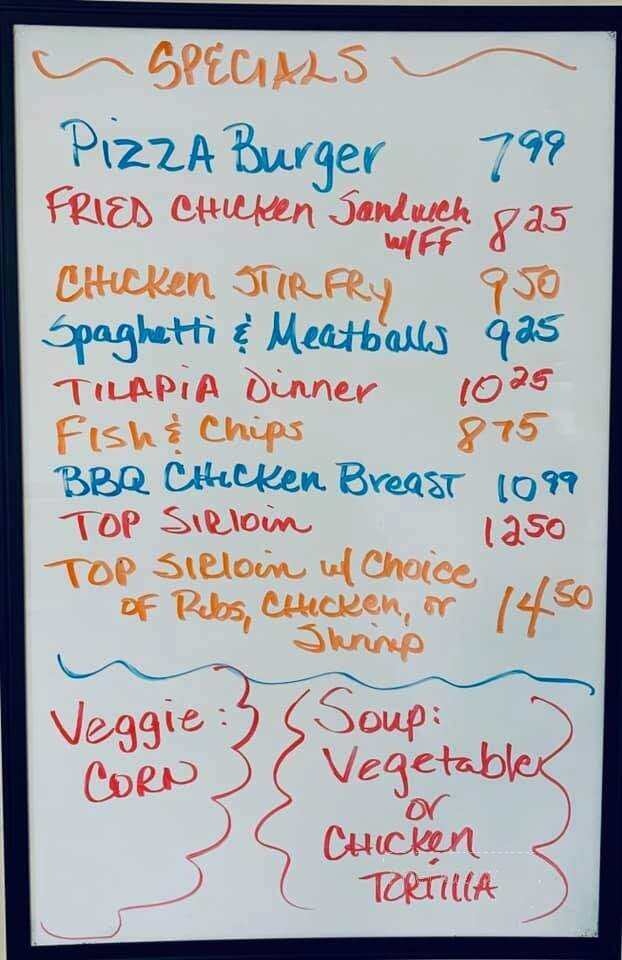 SPECIALS
Pizza Burger 7.99
FRIED CHICKEN Sandwich 8 25
w/FF
CHICKEN STIR FRY 9 50
Spaghetti & Meatballs 9 25
TILAPIA Dinner 10 25
Fish & Chips 8 75
BBQ CHICKEN Breast 10 99
TOP SIRLOIN 12 50
TOP SIRLOIN w/ Choice
OF Ribs, CHICKEN, or 14 50
Shrimp
Veggie:
CORN
Soup:
Vegetable
or
CHICKEN
TORTILLA